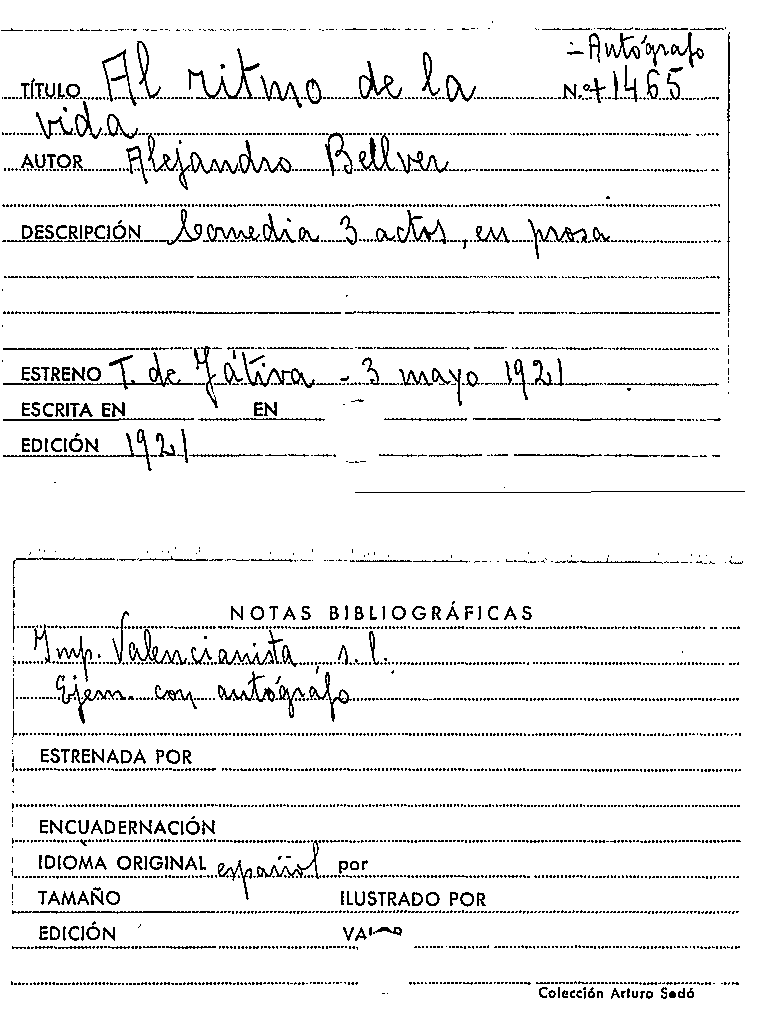 - Autógrafo
TÍTULO Al ritmo de la N.º +1465
vida
AUTOR Alejandro Bellver
DESCRIPCIÓN Comedia 3 actos, en prosa
ESTRENO T. de Játiva - 3 mayo 1921
ESCRITA EN EN
EDICIÓN 1921
NOTAS BIBLIOGRÁFICAS
Imp. Valencianista, s.l.
Ejem. con autógrafo
ESTRENADA POR
ENCUADERNACIÓN
IDIOMA ORIGINAL español por
TAMAÑO ILUSTRADO POR
EDICIÓN VALOR
Colección Arturo Sedó